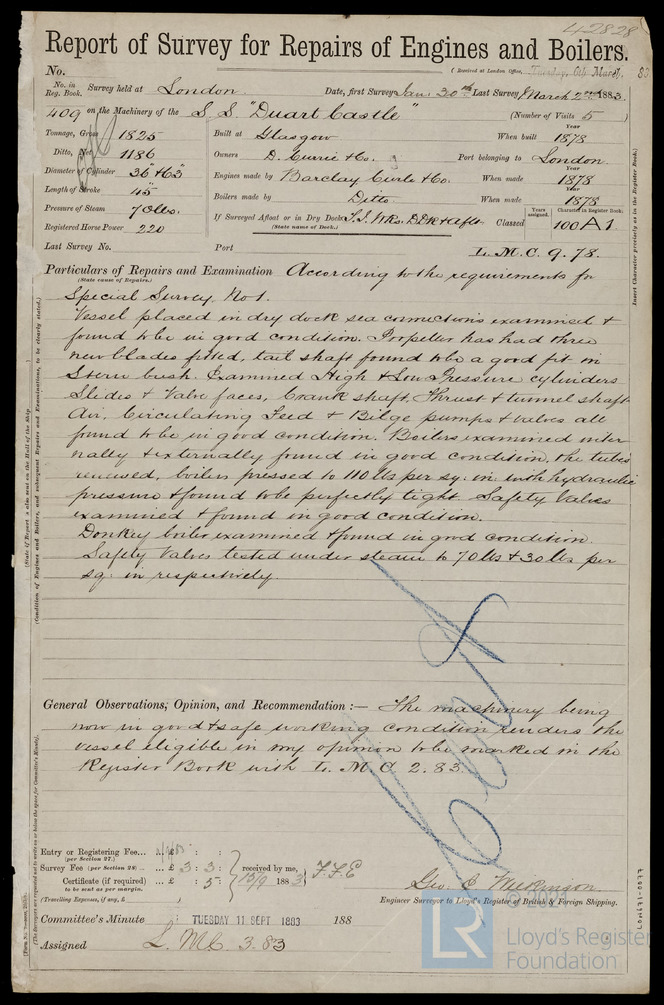 42828
Report of Survey for Repairs of Engines and Boilers.
No. (Received at London Office, Tuesday, 6th March, 83
No. in Reg. Book. Survey held at London Date, first Survey Jan: 30th Last Survey March 2nd 1883.
409 on the Machinery of the S.S. "Duart Castle" (Number of Visits 5 )
Tonnage, Gross 1825 Built at Glasgow When built Year 1878
Ditto, Net 1186 Owners D. Currie & Co. Port belonging to London
Diameter of Cylinder 36 & 63" Engines made by Barclay Curle & Co. When made Year 1878
Length of Stroke 45" Boilers made by Ditto When made Year 1878
Pressure of Steam 70 lbs. If Surveyed Afloat or in Dry Dock
(State name of Dock.) Classed Years assigned. Character in Register Book. 100 A1
Registered Horse Power 220
Last Survey No. Port L.M.C. 9.78.
Particulars of Repairs and Examination According to the requirements for
(State cause of Repairs.)
Special Survey No 1.
Vessel placed in dry dock sea connections examined &
found to be in good condition. Propeller has had three
new blades fitted, tail shaft found to be a good fit in
Stern bush. Examined High & Low Pressure cylinders
Slides & Valve faces, Crank shaft, Thrust & tunnel shaft
Air, Circulating Feed & Bilge pumps & valves all
found to be in good condition. Boilers examined inter
nally & externally found in good condition, the tubes
renewed, boilers pressed to 110 lbs per sq: in with hydraulic
pressure & found to be perfectly tight. Safety Valves
examined & found in good condition.
Donkey boiler examined & found in good condition.
Safety Valves tested under steam to 70 lbs & 30 lbs per
sq: in respectively.
General Observations, Opinion, and Recommendation :— The machinery being
now in good & safe working condition renders the
vessel eligible in my opinion to be marked in the
Register Book with L.M.C 2.83.
Entry or Registering Fee... ... £ : :
(per Section 27.)
Survey Fee (per Section 28) .. £ 3 : 3 : received by me,
Certificate (if required) ... £ : 5 : 13/9 1883
to be sent as per margin.
(Travelling Expenses, if any, £ )
Geo. C. Wilkinson
Engineer Surveyor to Lloyd's Register of British & Foreign Shipping.
Committee's Minute TUESDAY 11 SEPT 1883 188
Assigned L.M.C 3.83
Insert Character precisely as in the Register Book.
LR
© 2021
Lloyd's Register
Foundation